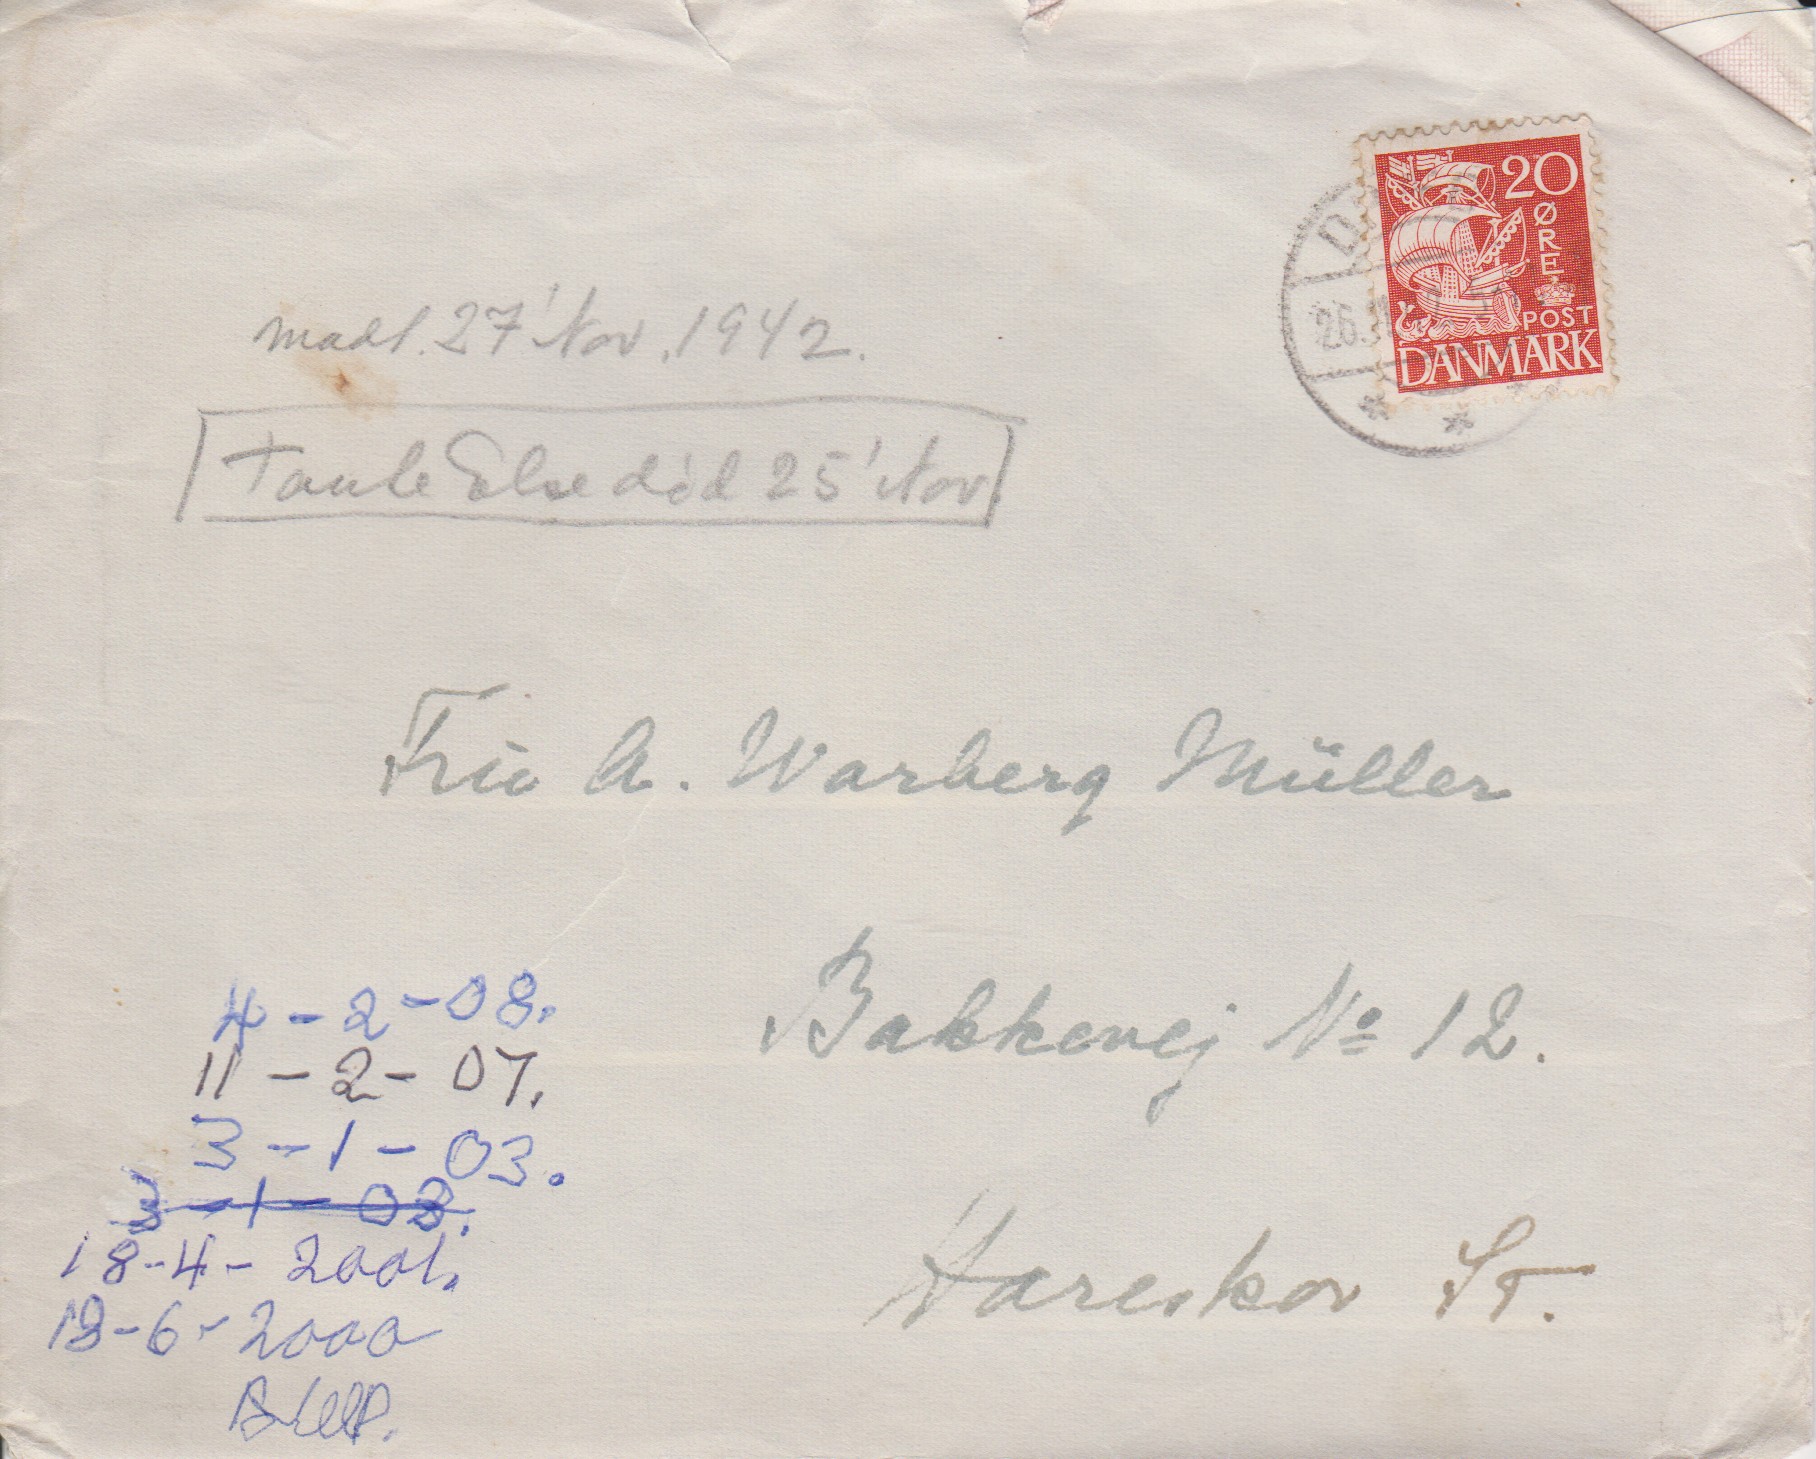 20
ØRE
POST
DANMARK
26.
27' Nov. 1942.
Tante Else död 25' Nov.
Fru A. Warberg Müller
Bakkevej No 12.
Hareskov St.
4-2-08.
11-2-07.
3-1-03.
3-1-03.
18-4-2001.
18-6-2000